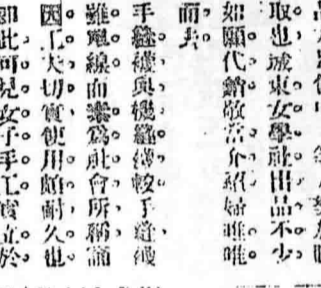 取也。城東女學社出品不少。
如願代銷。敬當介紹。婦唯唯
而去。
手縫襪與機縫襪較。手縫襪
雖鬆線而素爲社會所稱。蓋
因工夫切實。使用頗耐久也。
即此可見女子手工實立於